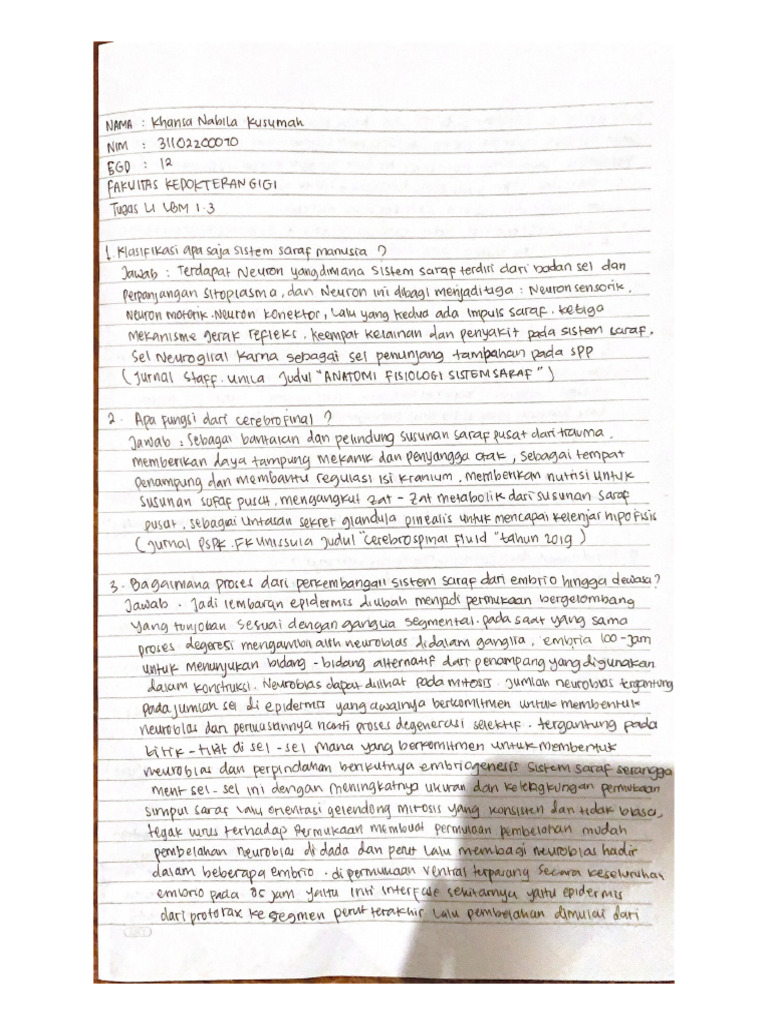 NAMA : Khansa Nabila Kusumah
NIM : 31102200070
SGD : 12
FAKULTAS KEDOKTERAN GIGI
Tugas LI LBM 1.3
1. Klasifikasi apa saja sistem saraf manusia ?
Jawab : Terdapat Neuron yang dimana sistem saraf terdiri dari badan sel dan
perpanjangan sitoplasma, dan Neuron ini dibagi menjadi tiga : Neuron sensorik,
Neuron motorik. Neuron Konektor, Lalu yang kedua ada impuls saraf. ketiga
mekanisme gerak refleks. keempat kelainan dan penyakit pada sistem saraf.
Sel Neuroglial karna sebagai sel penunjang tambahan pada SPP
(Jurnal Staff. Unila Judul "ANATOMI FISIOLOGI SISTEM SARAF")
2. Apa fungsi dari cerebrofinal ?
Jawab : Sebagai bantalan dan pelindung susunan saraf pusat dari trauma,
memberikan daya tampung mekanik dan penyangga otak, sebagai tempat
penampung dan membantu regulasi isi kranium, memberikan nutrisi untuk
susunan saraf pusat, mengangkut zat - zat metabolik dari susunan saraf
pusat, sebagai lintasan sekret glandula pinealis untuk mencapai kelenjar hipofisis
(Jurnal PSPK. FK Unissula Judul "cerebrospinal Fluid" tahun 2019)
3. Bagaimana proses dari perkembangan sistem saraf dari embrio hingga dewasa?
Jawab . Jadi lembaran epidermis diubah menjadi permukaan bergelombang
yang tonjolan sesuai dengan gangua segmental. pada saat yang sama
proses degeresi mengambil alih neuroblas didalam ganglia, embria 100-jam
untuk menunjukan bidang - bidang alternatif dari penampang yang digunakan
dalam konstruksi. Neuroblas dapat dilihat pada mitosis. Jumlah neuroblas tergantung
pada jumlah sel di epidermis yang awalnya berkomitmen untuk membentuk
neuroblas dan perluasannya nanti proses degenerasi selektif. tergantung pada
titik - titik di sel - sel mana yang berkomitmen untuk membentuk
neuroblas dan perpindahan berikutnya embriogenesis sistem saraf serangga
ment sel - sel ini dengan meningkatnya ukuran dan kelengkungan permukaan
simpul saraf lalu orientasi gelendong mitosis yang konsisten dan tidak biasa,
tegak lurus terhadap permukaan membuat permulaan pembelahan mudah
pembelahan neuroblas di dada dan perut lalu membagi neuroblas hadir
dalam beberapa embrio . di permukaan ventral terpasang secara keseluruhan
embrio pada 85 jam yaitu inti interfase sekitarnya yaitu epidermis
dari protorax ke segmen perut terakhir lalu pembelahan dimulai dari